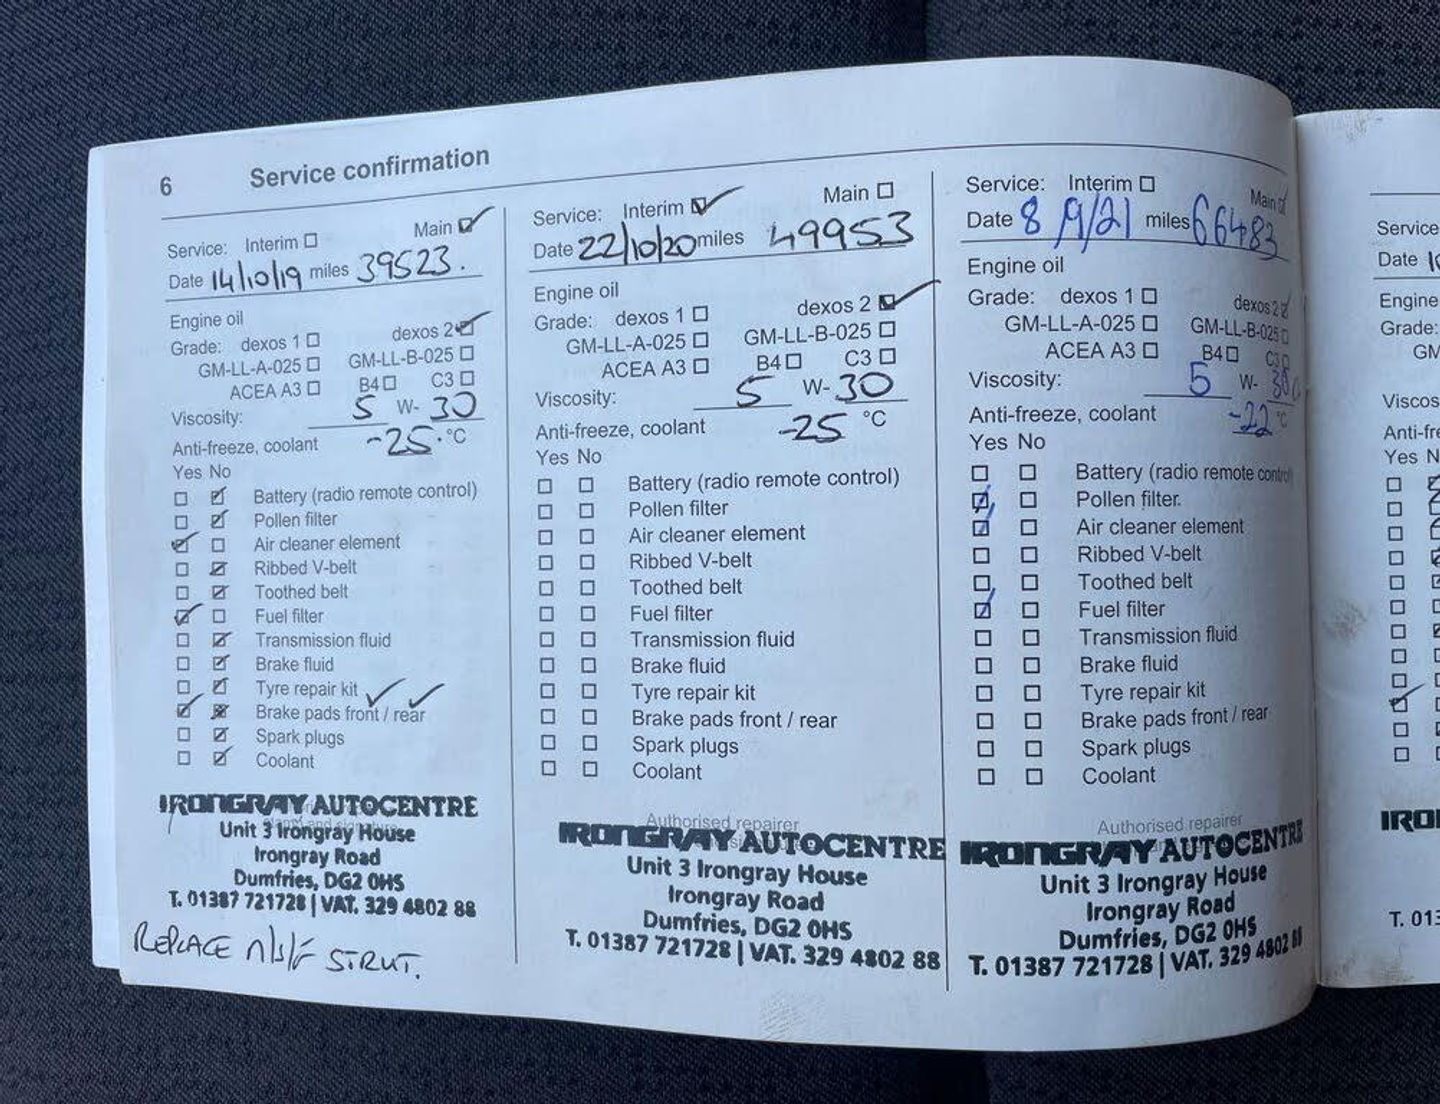 6 Service confirmation
Main
Service: Interim
Date 14/10/19 miles 39523.
Engine oil
Grade: dexos 1 dexos 2
GM-LL-A-025 GM-LL-B-025
ACEA A3 B4 C3
Viscosity: 5 W- 30
Anti-freeze, coolant -25 °C
Yes No
Battery (radio remote control)
Pollen filter
Air cleaner element
Ribbed V-belt
Toothed belt
Fuel filter
Transmission fluid
Brake fluid
Tyre repair kit
Brake pads front / rear
Spark plugs
Coolant
IRONGRAY AUTOCENTRE
Unit 3 Irongray House
Irongray Road
Dumfries, DG2 0HS
T. 01387 721728 | VAT. 329 4802 88
REPLACE N/S/F STRUT.
Service: Interim Main
Date 22/10/20 miles 49953
Engine oil
Grade: dexos 1 dexos 2
GM-LL-A-025 GM-LL-B-025
ACEA A3 B4 C3
Viscosity: 5 W- 30
Anti-freeze, coolant -25 °C
Yes No
Battery (radio remote control)
Pollen filter
Air cleaner element
Ribbed V-belt
Toothed belt
Fuel filter
Transmission fluid
Brake fluid
Tyre repair kit
Brake pads front / rear
Spark plugs
Coolant
Authorised repairer
IRONGRAY AUTOCENTRE
Unit 3 Irongray House
Irongray Road
Dumfries, DG2 0HS
T. 01387 721728 | VAT. 329 4802 88
Service: Interim Main
Date 8/9/21 miles 66483
Engine oil
Grade: dexos 1 dexos 2
GM-LL-A-025 GM-LL-B-025
ACEA A3 B4 C3
Viscosity: 5 W- 30
Anti-freeze, coolant -22 °C
Yes No
Battery (radio remote control)
Pollen filter.
Air cleaner element
Ribbed V-belt
Toothed belt
Fuel filter
Transmission fluid
Brake fluid
Tyre repair kit
Brake pads front / rear
Spark plugs
Coolant
Authorised repairer
IRONGRAY AUTOCENTRE
Unit 3 Irongray House
Irongray Road
Dumfries, DG2 0HS
T. 01387 721728 | VAT. 329 4802 88
Service
Date
Engine
Grade:
GM
Yes